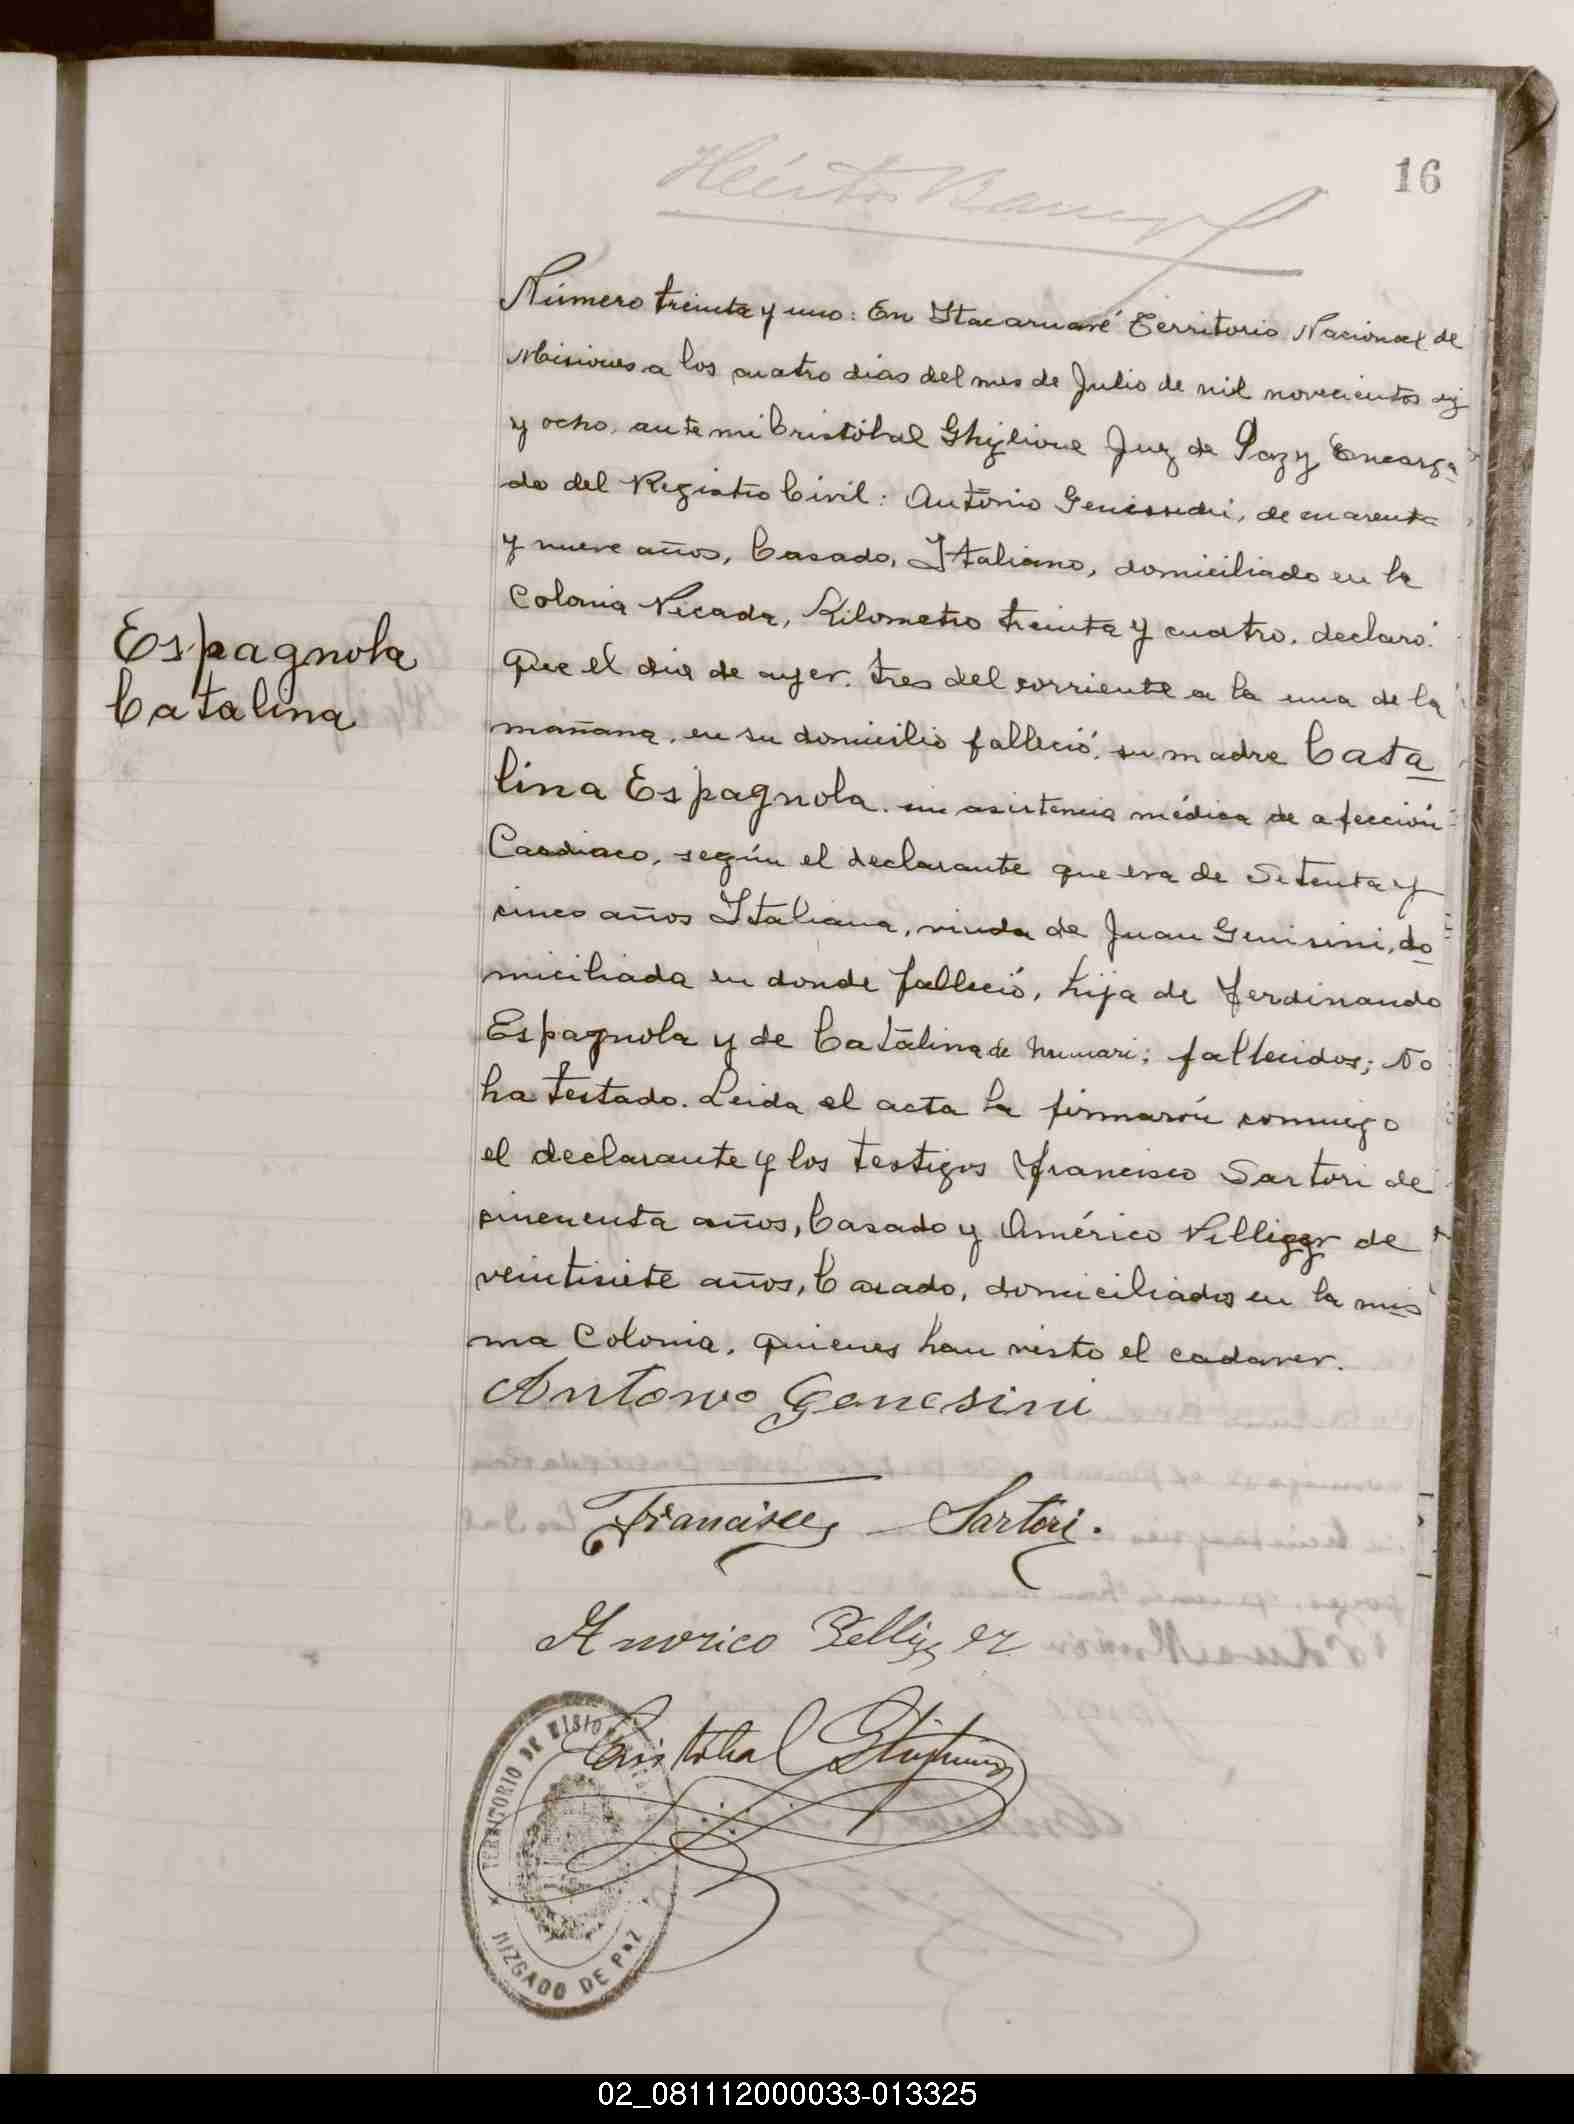 16
Número treinta y uno: En Itacaruaré Territorio Nacional de
Misiones a los cuatro dias del mes de Julio de mil novecientos diez
y ocho, ante mi Cristóbal Juez de Paz y Encarga
do del Registro Civil: Antonio de cuarenta
y nueve años, Casado, Italiano, domiciliado en la
Colonia Picada, Kilometro treinta y cuatro, declaró:
Que el dia de ayer, tres del corriente a la una de la
Espagnola
Catalina
mañana, en su domicilio falleció, su madre Cata
lina Espagnola, sin asistencia médica de afección
Cardiaco, según el declarante que era de Setenta y
cinco años Italiana, viuda de Juan Genisini, do
miciliada en donde falleció, hija de Ferdinando
Espagnola y de Catalina de fallecidos; No
ha testado. Leida el acta la firmarón conmigo
el declarante y los testigos Francisco Sartori de
cincuenta años, Casado y Américo de
veintisiete años, Casado, domiciliados en la mis
ma Colonia, quienes han visto el cadaver.
Antonio Genesini
Francisco Sartori.
Americo
Cristóbal
TERRITORIO DE MISIONES
JUZGADO DE PAZ
02_081112000033-013325